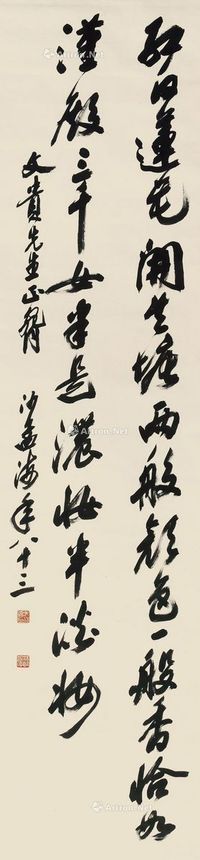 紅白蓮花開共塘兩般顏色一般香恰如
漢殿三千女半是濃妝半淡妝
文貴先生正
沙孟海年八十三
Artron.Net